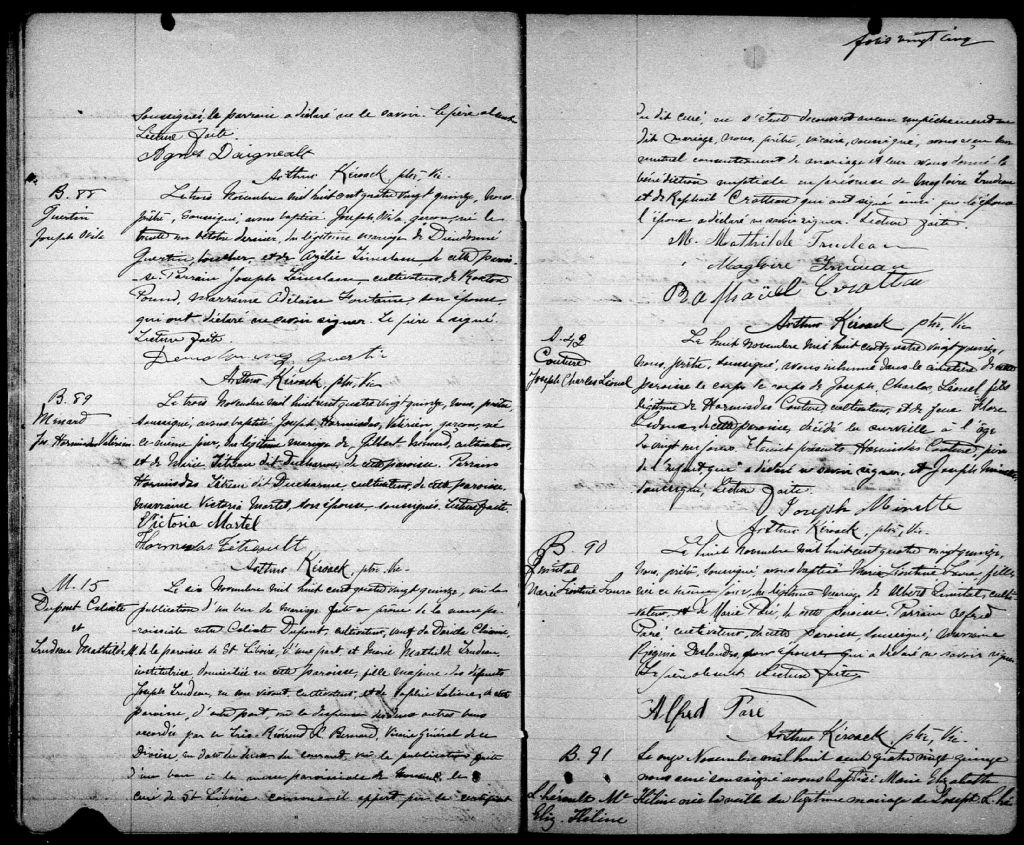 soussignés, le parrain a déclaré ne le savoir. Le père absent
Lecture faite.
Agnès Daigneault
Arthur Kérosack ptre, Vic.
B. 88
Guertin
Joseph
Le trois Novembre mil huit cent quatre vingt quinze, nous
prêtre, soussigné, avons baptisé Joseph, garçon, né le
trente un octobre dernier, du légitime mariage de Dieudonné
Guertin, boucher, et de de cette parois-
se. Parrain Joseph cultivateur, de Roxton
Pound, marraine Adelaise Fontaine, son épouse,
qui ont déclaré ne savoir signer. Le père a signé.
Lecture faite.
Guertin
Arthur Kérosack, ptre, Vic.
B. 89
Ménard
Jos. Hormisdas Valérien
Le trois Novembre mil huit cent quatre vingt quinze, nous, prêtre,
soussigné, avons baptisé Joseph Hormisdas, Valérien, garçon, né
ce même jour, du légitime mariage de Gilbert Ménard, cultivateur,
et de Marie Tétreau dit Ducharme, de cette paroisse. Parrain
Hormisdas Tétreau dit Ducharme, cultivateur, de cette paroisse,
marraine Victoria Martel, son épouse, soussignés. Lecture faite.
Victoria Martel
Hormisdas Tétreault
Arthur Kérosack, ptre, Vic.
M. 15
Dupont Calixte
et
Trudeau Mathilde M.
Le six Novembre mil huit cent quatre vingt quinze, vu la
publication d'un ban de mariage faite au prône de la messe pa-
roissiale entre Calixte Dupont, cultivateur, veuf de
de la paroisse de St Liboire, d'une part, et Marie Mathilde Trudeau,
institutrice, domiciliée en cette paroisse, fille majeure des défunts
Joseph Trudeau, en son vivant, cultivateur, et de Sophie de cette
paroisse, d'autre part, vu la dispense des deux autres bans
accordée par le Très Révérend Bernard, Vicaire Général de ce
Diocèse, en date du du courant, vu la publication faite
d'un ban à la messe paroissiale de par le
curé de St Liboire comme il appert par le certificat
trois vingt cinq
du dit curé, ne s'étant découvert aucun empêchement au
dit mariage, nous, prêtre, vicaire, soussigné, avons reçu leur
mutuel consentement de mariage et leur avons donné la
bénédiction nuptiale en présence de Magloire Trudeau
et de Raphaël Croteau qui ont signé ainsi que l'épouse
l'époux a déclaré ne savoir signer. Lecture faite.
M. Mathilde Trudeau
Magloire Trudeau
Raphaël Croteau
Arthur Kérosack ptre, Vic.
S. 42
Couture
Joseph Charles Lionel
Le huit novembre mil huit cent quatre vingt quinze,
nous, prêtre, soussigné, avons inhumé dans le cimetière de cette
paroisse le corps le corps de Joseph, Charles, Lionel, fils
légitime de Hormisdas Couture, cultivateur, et de feue Flore
de cette paroisse, décédé la surveille à l'âge
de vingt six jours. Etaient présents Hormisdas Couture, père
de l'enfant, qui a déclaré ne savoir signer, et Joseph
soussigné. Lecture faite.
Joseph
Arthur Kérosack, ptre, Vic.
B. 90
Marie Léontine Laura
Le huit novembre mil huit cent quatre vingt quinze,
nous, prêtre, soussigné, avons baptisé Marie Léontine Laura, fille,
née ce même jour, du légitime mariage de Albert culti-
vateur, et de Marie Paré, de cette paroisse. Parrain Alfred
Paré, cultivateur, de cette paroisse, soussigné, marraine
Régina Deslandes, son épouse, qui a déclaré ne savoir signer
Le père absent. Lecture faite.
Alfred Paré
Arthur Kérosack ptre, Vic.
B. 91
L'hérault Mie
Eliz. Hélène
Le onze Novembre mil huit cent quatre vingt quinze
nous curé soussigné avons baptisé Marie Elizabeth
Hélène née la veille du légitime mariage de Joseph L'hé-